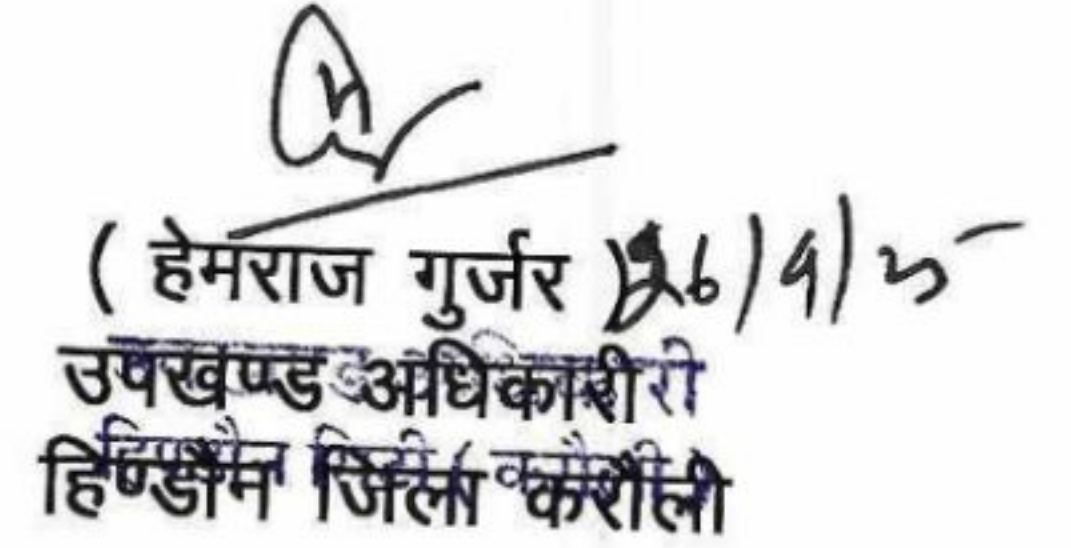 ( हेमराज गुर्जर ) 26/9/25
उपखण्ड अधिकारी
हिण्डौन जिला करौली